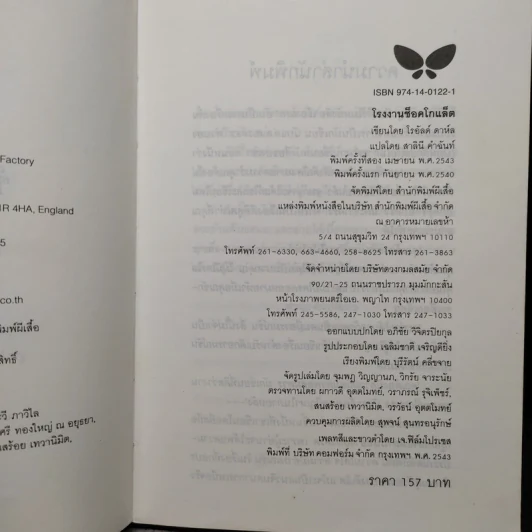 Factory
4HA, England
5
co.th
ISBN 974-14-0122-1
โรงงานช็อคโกแล็ต
เขียนโดย โรอัลด์ ดาห์ล
แปลโดย สาลินี คำฉันท์
พิมพ์ครั้งที่สอง เมษายน พ.ศ.2543
พิมพ์ครั้งแรก กันยายน พ.ศ.2540
จัดพิมพ์โดย สำนักพิมพ์ผีเสื้อ
แหล่งพิมพ์หนังสือในบริษัท สำนักพิมพ์ผีเสื้อ จำกัด
ณ อาคารหมายเลขห้า
5/4 ถนนสุขุมวิท 24 กรุงเทพฯ 10110
โทรศัพท์ 261-6330, 663-4660, 258-8625 โทรสาร 261-3863
จัดจำหน่ายโดย บริษัทดวงกมลสมัย จำกัด
90/21-25 ถนนราชปรารภ มุมมักกะสัน
หน้าโรงภาพยนตร์โอเอ. พญาไท กรุงเทพฯ 10400
โทรศัพท์ 245-5586, 247-1030 โทรสาร 247-1033
ออกแบบปกโดย อภิชัย วิจิตรปิยกุล
รูปประกอบโดย เฉลิมชาติ เจริญดียิ่ง
เรียงพิมพ์โดย บุรีรัตน์ คลี่ขจาย
จัดรูปเล่มโดย จุมพฏ วิญญานภ, วิกรัย จาระนัย
ตรวจทานโดย ผกาวดี อุตตโมทย์, วราภรณ์ รุจิเพ็ชร์,
สนสร้อย เทวานิมิต, วรวัอน์ อุตตโมทย์
ควบคุมการผลิตโดย สุพจน์ สุนทรอนุรักษ์
เพลทสีและขาวดำโดย เจ.ฟิล์มโปรเซส
พิมพ์ที่ บริษัท คอมฟอร์ม จำกัด กรุงเทพฯ พ.ศ. 2543
ราคา 157 บาท